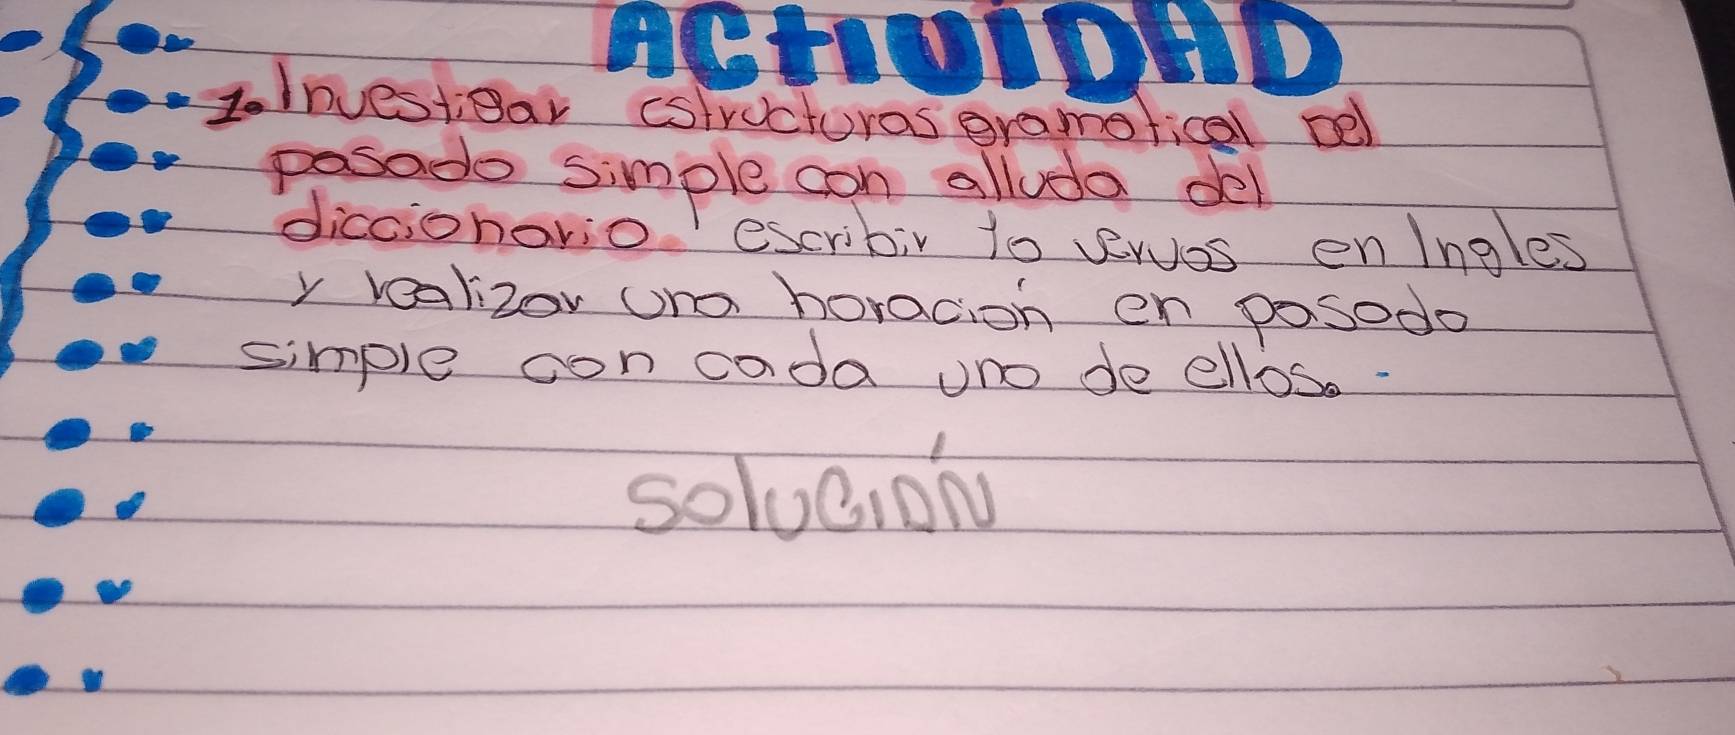 ACtIVIDAD
1. Investigar estructuras gramatical Del
pasado simple con alluda del
diccionario. escribir 10 vervos en Ingles
y realizar una horación en pasado
simple con cada uno de ellos.
SolUCIÓN